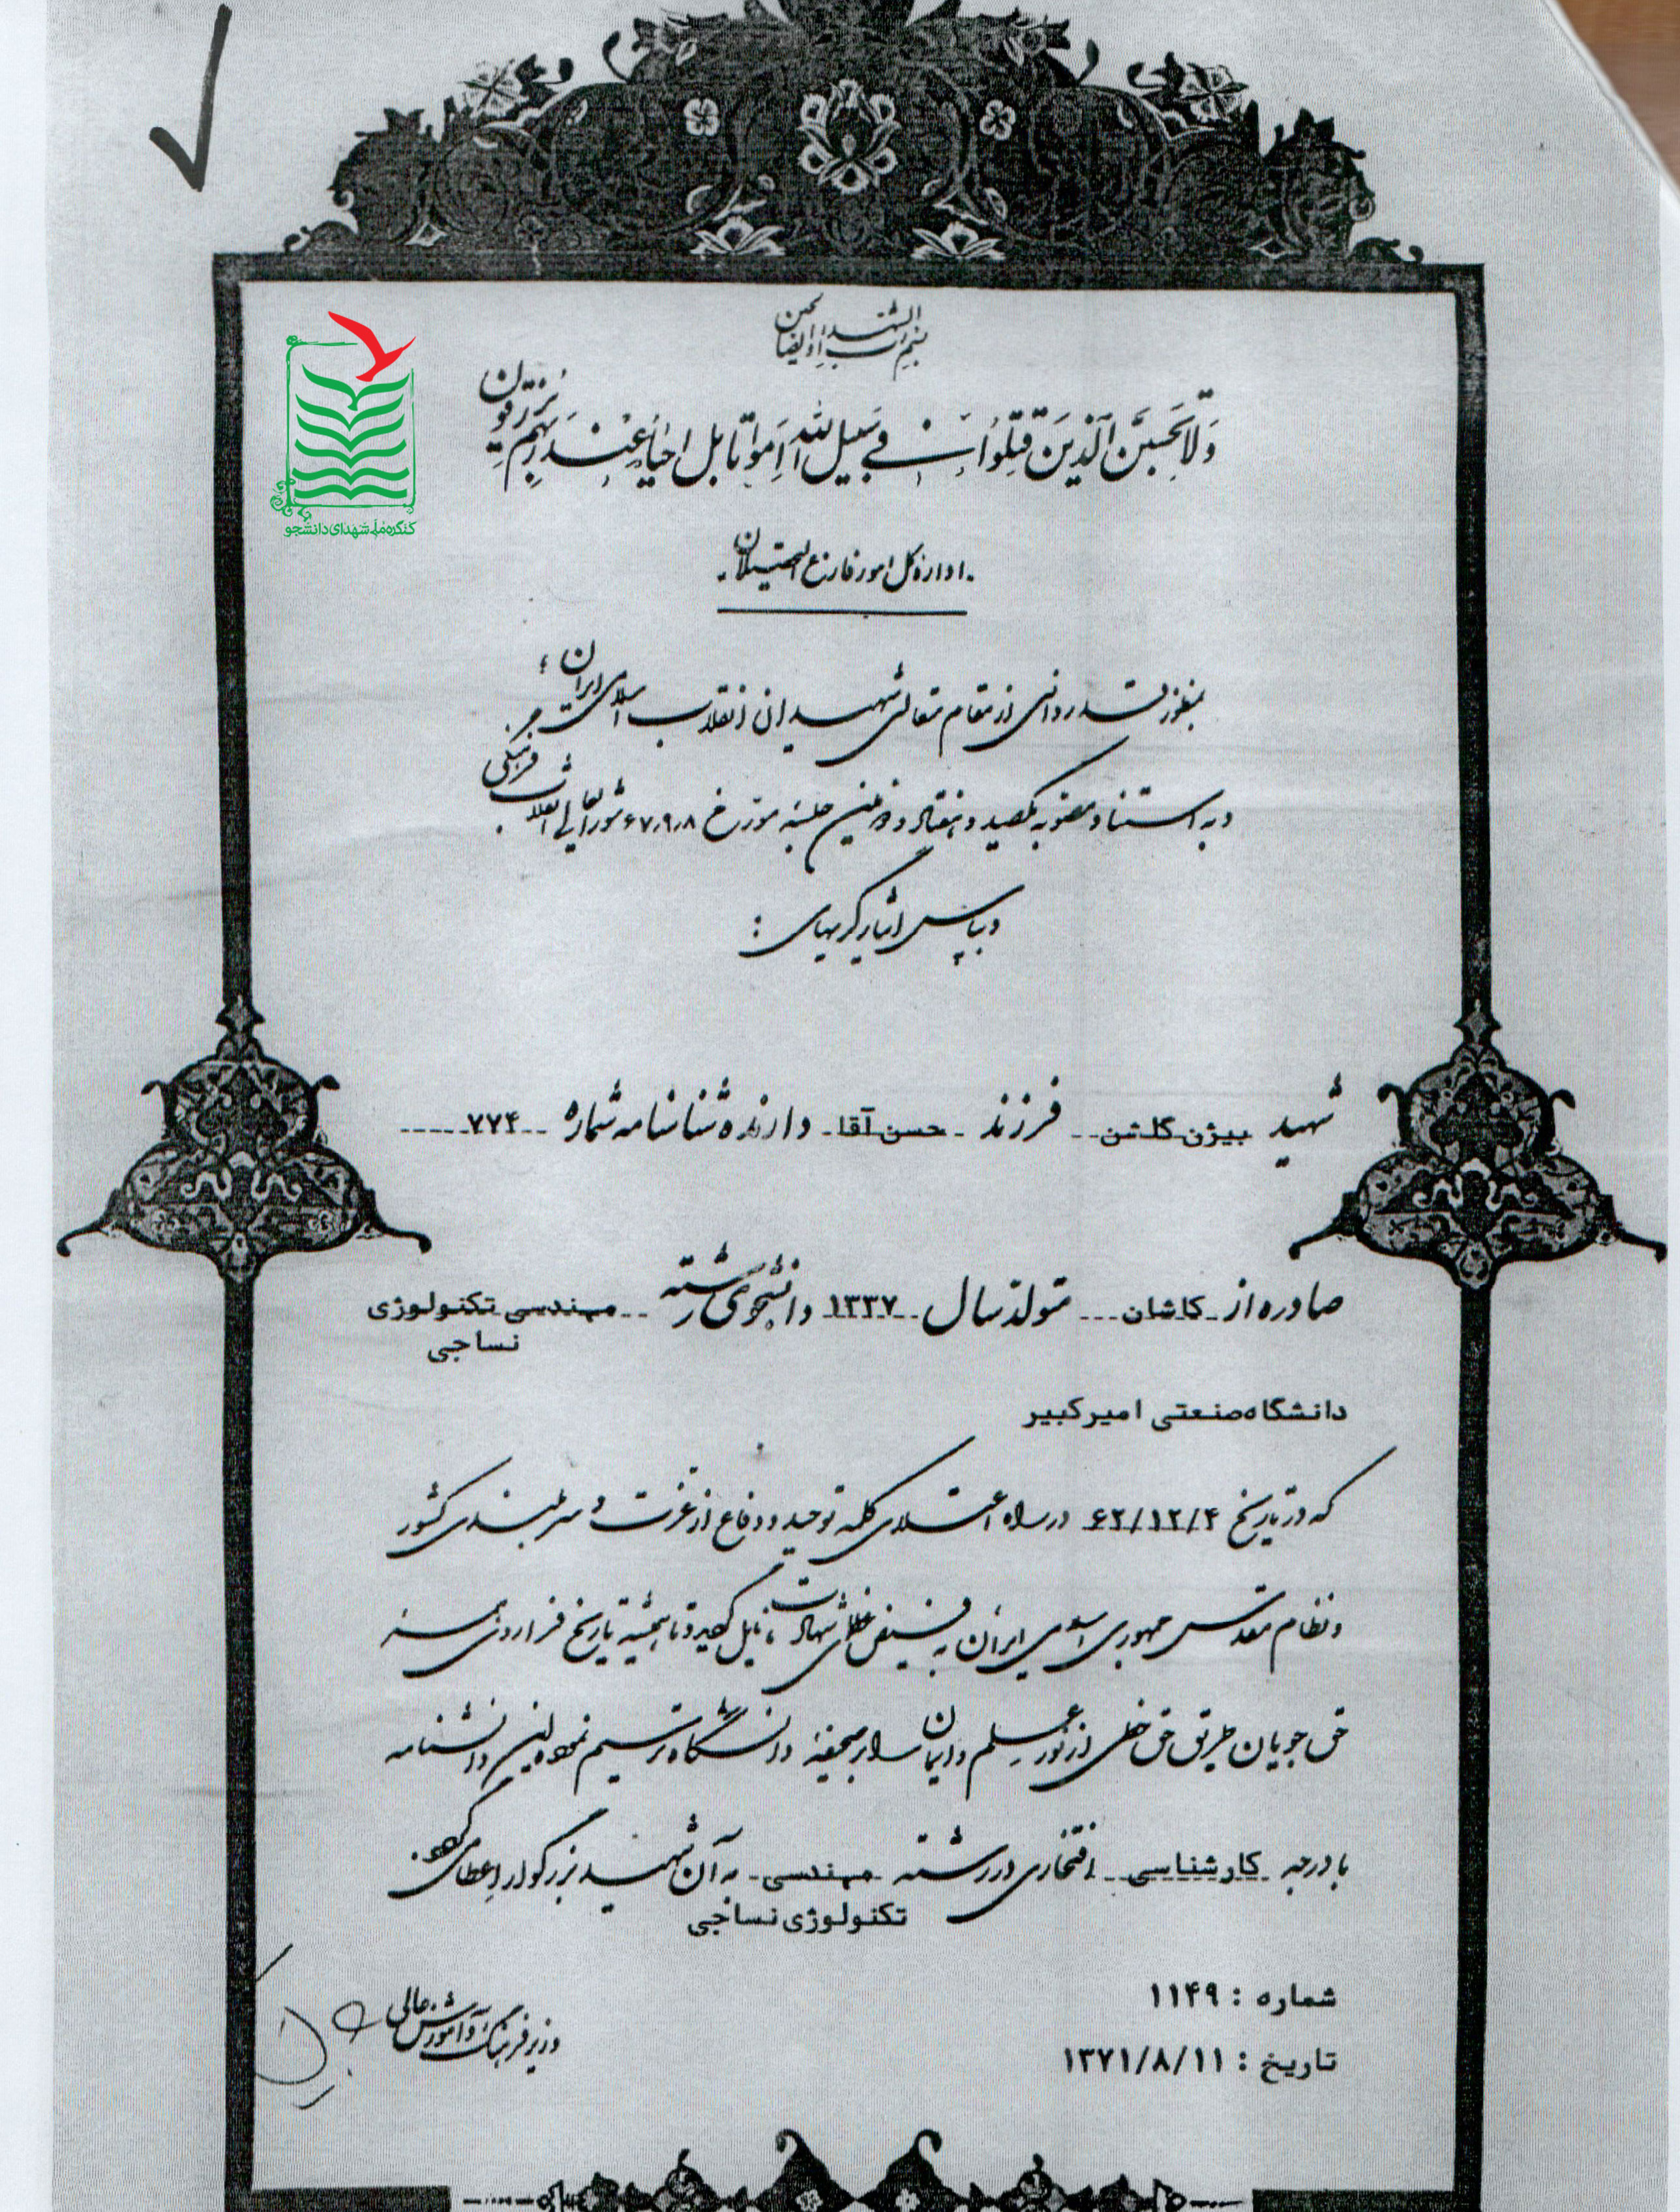 بسم رب الشهداء و الصالحین
وَلا تَحْسَبَنَّ الَّذینَ قُتِلُوا فی سَبیلِ اللهِ اَمْواتاً بَل اَحْیاءٌ عِنْدَ رَبِّهِم یُرْزَقُون
کنگره ملی شهدای دانشجو
اداره کل امور فارغ التحصیلان
بمنظور قدردانی از مقام متعالی شهیدان انقلاب اسلامی ایران ؛
و به استناد مصوبه یکصد و هفتاد و دومین جلسه مورخ ۶۷٫۹٫۸ شورایعالی انقلاب فرهنگی
و بپاس ایثارگریهای :
شهید بیژن گلشن فرزند حسن آقا دارنده شناسنامه شماره ۷۷۴
صادره از کاشان متولد سال ۱۳۳۷ دانشجوی رشته مهندسی تکنولوژی
نساجی
دانشگاه صنعتی امیرکبیر
که در تاریخ ۶۲/۱۲/۴ در راه اعتلای کلمه توحید و دفاع از عزت و سربلندی کشور
و نظام مقدس جمهوری اسلامی ایران به فیض عظمای شهادت نایل گردید و تا همیشه تاریخ فرا روی همه
حق جویان طریق حق خطی از نور علم و ایمان را بر صحیفه دانشگاه ترسیم نمود این دانشنامه
با درجه کارشناسی افتخاری در رشته مهندسی به آن شهید بزرگوار اعطا می گردد.
تکنولوژی نساجی
شماره : ۱۱۴۹
وزیر فرهنگ و آموزش عالی
تاریخ : ۱۳۷۱/۸/۱۱